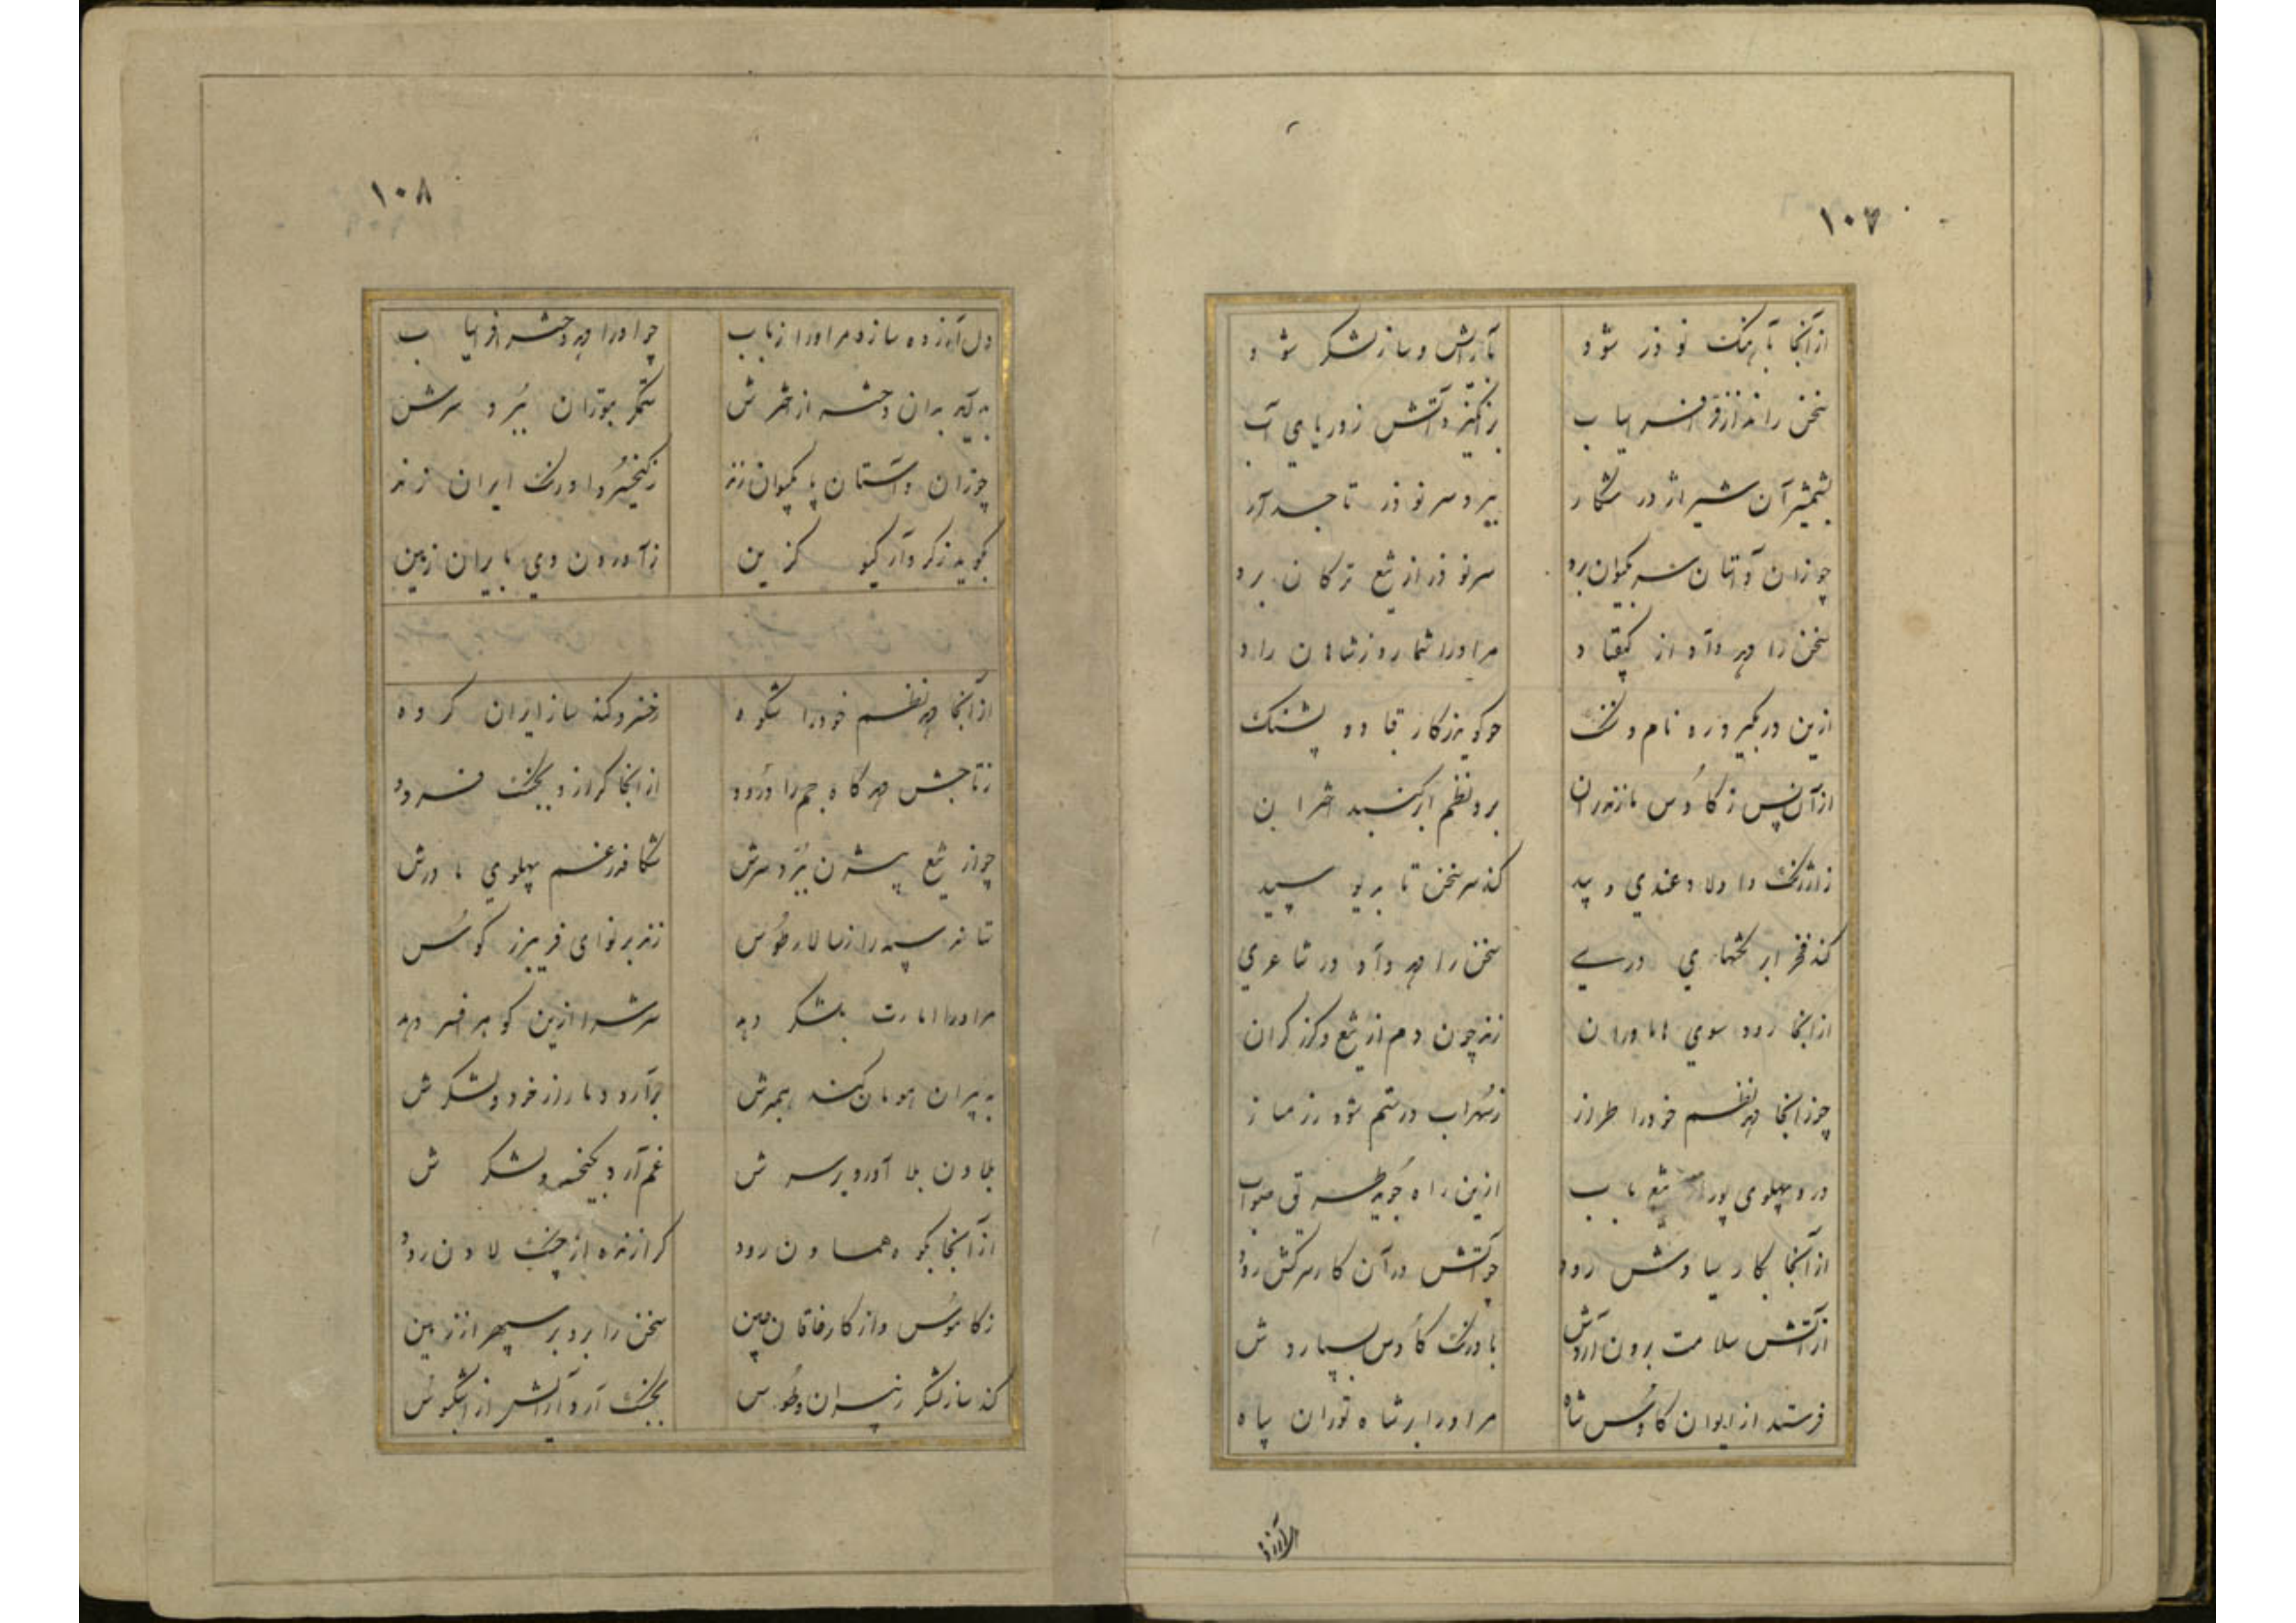 ۱۰۷
از آنجا بآهنگ نوذر شود بآرایش و ساز لشکر شود
سخن راند از فر افراسیاب برانگیزد آتش ز دریای آب
بشمشیر آن شیر اژدر شکار ببرد سر نوذر تاجدار
چو زان داستان سر بکیوان برد سر نوذر از تیغ ترکان برد
سخن را دهد داد از کیقباد مر او را شمارد ز شاهان راد
ازین در بگیرد ره نام و ننگ چو گوید ز کار قباد و پشنگ
از آن پس ز کاوس مازندران برد نظم بر گنبد اختران
ز ارژنگ و اولاد غندی و بید کند سر سخن تا بدیو سپید
کند فخر بر گفتهای دری سخن را دهد داد در شاعری
از آنجا رود سوی هاماوران زند چون دم از تیغ و گرز گران
چو زانجا دهد نظم خود را طراز ز سهراب و رستم شود رزمساز
درد پهلوی پور از تیغ باب ازین راه جوید طریق صواب
از آنجا بکار سیاوش رود چو آتش در آن کار سرکش رود
از آتش سلامت برون آردش باورنگ کاوس بسپاردش
فرستد از ایوان کاوس شاه مر او را بر شاه توران سپاه
۱۰۸
دل آزرده سازد مر او را ز باب چو او را دهد دخت افراسیاب
بد آید بدان دخت از اخترش ستمگر بتوران ببرد سرش
چو زان داستان پا بکیوان زند ز کیخسرو اورنگ ایران زند
بگوید ز کردار گیو گزین ز آوردن وی بایران زمین
از آنجا دهد نظم خود را شکوه ز خسرو کند ساز ایران گروه
ز تاجش دهد گاه جم را درود از آنجا گراید بجنگ فرود
چو از تیغ بیژن ببرد سرش شکافد ز غم پهلوی مادرش
ستاند سپه را ز سالار طوس زند بر نوای فریبرز کوس
مر او را امارت بلشکر دهد سرش را ازین گوهر افسر دهد
به پیران هومان کند همبرش برآرد دمار از خود و لشکرش
بلادن بلا آورد بر سرش غم آرد بکیخسرو لشکرش
از آنجا بکوه هماون رود گرازنده از جنگ لادن رود
ز کاموس و از کار خاقان چین سخن را برد بر سپهر از زمین
کند ساز لشکر ز پیران و طوس بجنگ آرد آرایش از اشکبوس